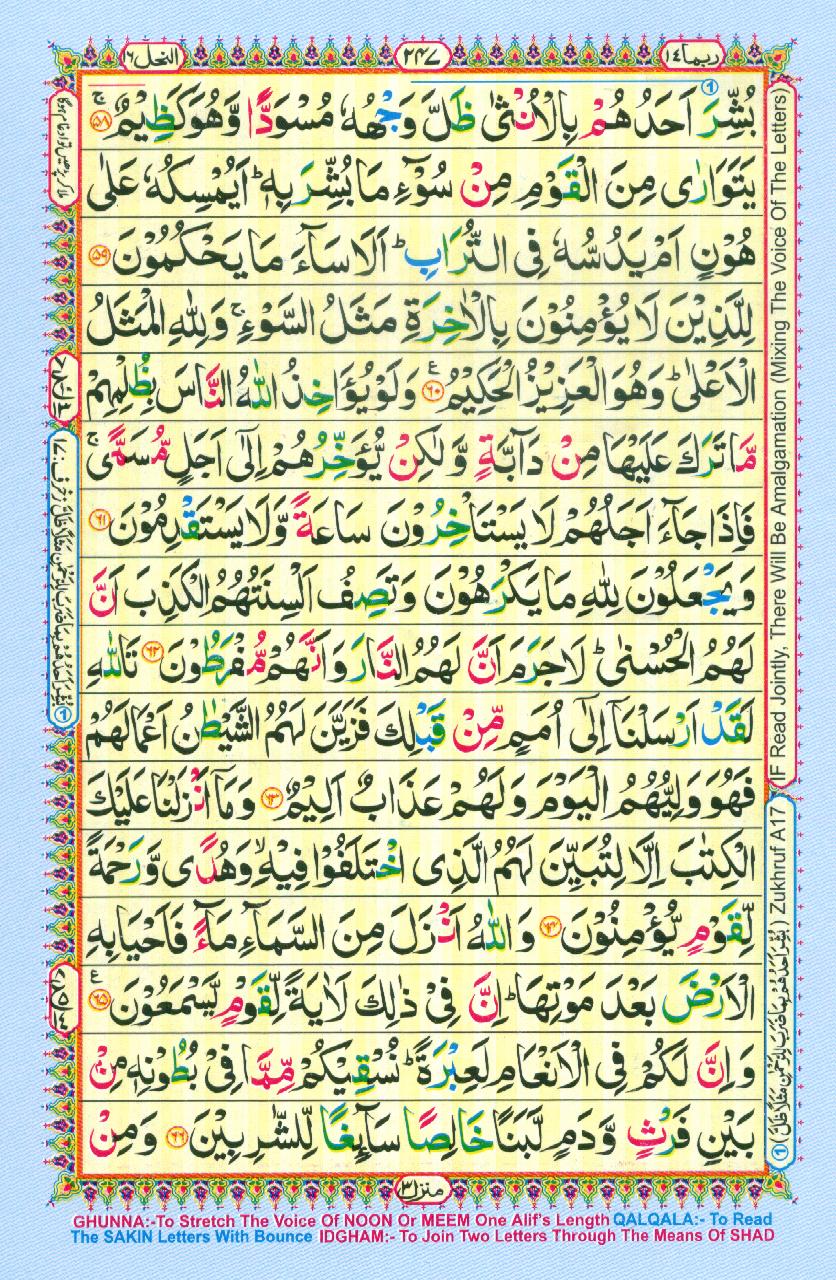 ربما ١٤
٢٤٧
النحل ١٦
بُشِّرَ اَحَدُهُمْ بِالْاُنْثٰى ظَلَّ وَجْهُهٗ مُسْوَدًّا وَّهُوَ كَظِيْمٌ ۚ ﴿٥٨﴾
يَتَوَارٰى مِنَ الْقَوْمِ مِنْ سُوْٓءِ مَا بُشِّرَ بِهٖ ؕ اَيُمْسِكُهٗ عَلٰى
هُوْنٍ اَمْ يَدُسُّهٗ فِى التُّرَابِ ؕ اَلَا سَآءَ مَا يَحْكُمُوْنَ ﴿٥٩﴾
لِلَّذِيْنَ لَا يُؤْمِنُوْنَ بِالْاٰخِرَةِ مَثَلُ السَّوْءِ ۚ وَلِلّٰهِ الْمَثَلُ
الْاَعْلٰى ؕ وَهُوَ الْعَزِيْزُ الْحَكِيْمُ ﴿٦٠﴾ ع وَلَوْ يُؤَاخِذُ اللّٰهُ النَّاسَ بِظُلْمِهِمْ
مَّا تَرَكَ عَلَيْهَا مِنْ دَآبَّةٍ وَّلٰكِنْ يُّؤَخِّرُهُمْ اِلٰٓى اَجَلٍ مُّسَمًّى ۚ
فَاِذَا جَآءَ اَجَلُهُمْ لَا يَسْتَاْخِرُوْنَ سَاعَةً وَّلَا يَسْتَقْدِمُوْنَ ﴿٦١﴾
وَيَجْعَلُوْنَ لِلّٰهِ مَا يَكْرَهُوْنَ وَتَصِفُ اَلْسِنَتُهُمُ الْكَذِبَ اَنَّ
لَهُمُ الْحُسْنٰى ؕ لَا جَرَمَ اَنَّ لَهُمُ النَّارَ وَاَنَّهُمْ مُّفْرَطُوْنَ ﴿٦٢﴾ تَاللّٰهِ
لَقَدْ اَرْسَلْنَاۤ اِلٰٓى اُمَمٍ مِّنْ قَبْلِكَ فَزَيَّنَ لَهُمُ الشَّيْطٰنُ اَعْمَالَهُمْ
فَهُوَ وَلِيُّهُمُ الْيَوْمَ وَلَهُمْ عَذَابٌ اَلِيْمٌ ﴿٦٣﴾ وَمَاۤ اَنْزَلْنَا عَلَيْكَ
الْكِتٰبَ اِلَّا لِتُبَيِّنَ لَهُمُ الَّذِى اخْتَلَفُوْا فِيْهِ ۙ وَهُدًى وَّرَحْمَةً
لِّقَوْمٍ يُّؤْمِنُوْنَ ﴿٦٤﴾ وَاللّٰهُ اَنْزَلَ مِنَ السَّمَآءِ مَآءً فَاَحْيَا بِهِ
الْاَرْضَ بَعْدَ مَوْتِهَا ؕ اِنَّ فِىْ ذٰلِكَ لَاٰيَةً لِّقَوْمٍ يَّسْمَعُوْنَ ﴿٦٥﴾ ع
وَاِنَّ لَكُمْ فِى الْاَنْعَامِ لَعِبْرَةً ؕ نُسْقِيْكُمْ مِّمَّا فِىْ بُطُوْنِهٖ مِنْ
بَيْنِ فَرْثٍ وَّدَمٍ لَّبَنًا خَالِصًا سَآئِغًا لِّلشّٰرِبِيْنَ ﴿٦٦﴾ وَمِنْ
منزل ٣
(IF Read Jointly, There Will Be Amalgamation (Mixing The Voice Of The Letters)
Zukhruf A17
GHUNNA:-To Stretch The Voice Of NOON Or MEEM One Alif's Length QALQALA:- To Read
The SAKIN Letters With Bounce IDGHAM:- To Join Two Letters Through The Means Of SHAD